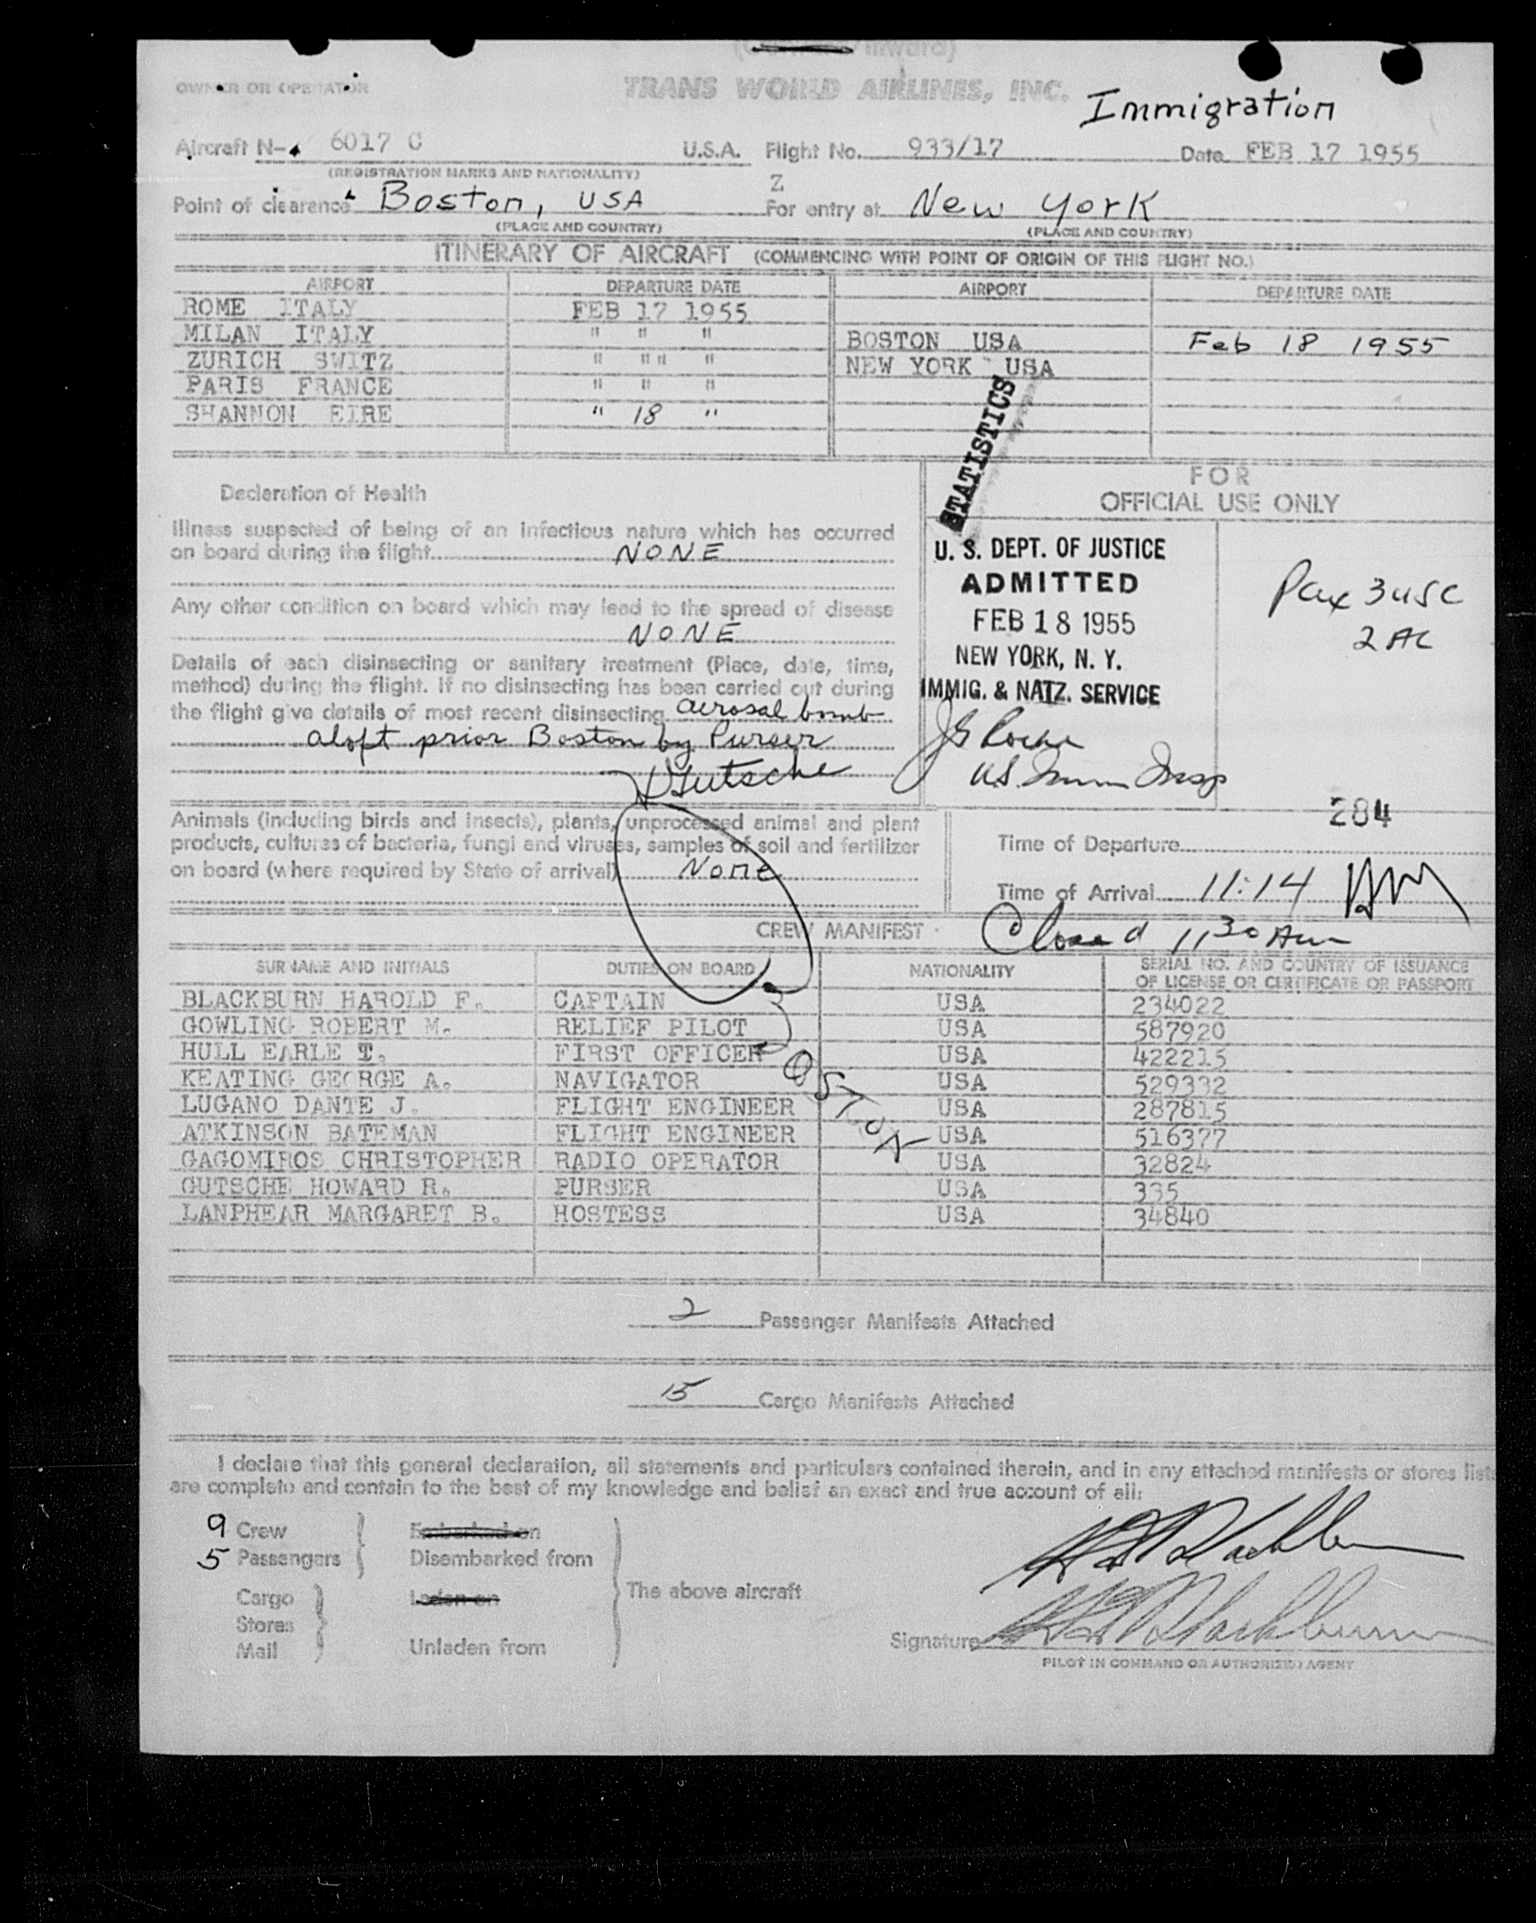 OWNER OR OPERATOR
TRANS WORLD AIRLINES, INC.
Immigration
Aircraft N- 6017 C U.S.A. Flight No. 933/17 Date FEB 17 1955
(REGISTRATION MARKS AND NATIONALITY)
Z
Point of clearance Boston, USA For entry at New York
(PLACE AND COUNTRY) (PLACE AND COUNTRY)
ITINERARY OF AIRCRAFT (COMMENCING WITH POINT OF ORIGIN OF THIS FLIGHT NO.)
AIRPORT DEPARTURE DATE AIRPORT DEPARTURE DATE
ROME ITALY FEB 17 1955
MILAN ITALY " " " BOSTON USA Feb 18 1955
ZURICH SWITZ " "" " NEW YORK USA
PARIS FRANCE " " "
SHANNON EIRE " 18 "
STATISTICS
FOR
OFFICIAL USE ONLY
Declaration of Health
Illness suspected of being of an infectious nature which has occurred
on board during the flight NONE
Any other condition on board which may lead to the spread of disease
NONE
Details of each disinsecting or sanitary treatment (Place, date, time,
method) during the flight. If no disinsecting has been carried out during
the flight give details of most recent disinsecting aerosal bomb
aloft prior Boston by Purser
Gutsche
U. S. DEPT. OF JUSTICE
ADMITTED
FEB 18 1955
NEW YORK, N. Y.
IMMIG. & NATZ. SERVICE
JG Roche
U.S. Imm Insp
Pax 3 USC
2 AC
284
Animals (including birds and insects), plants, unprocessed animal and plant
products, cultures of bacteria, fungi and viruses, samples of soil and fertilizer
on board (where required by State of arrival) None
Time of Departure
Time of Arrival 11:14 AM
Closed 11 30 Am
CREW MANIFEST
SURNAME AND INITIALS DUTIES ON BOARD NATIONALITY SERIAL NO. AND COUNTRY OF ISSUANCE
OF LICENSE OR CERTIFICATE OR PASSPORT
BLACKBURN HAROLD F. CAPTAIN USA 234022
GOWLING ROBERT M. RELIEF PILOT USA 587920
HULL EARLE T. FIRST OFFICER USA 422215
KEATING GEORGE A. NAVIGATOR USA 529332
LUGANO DANTE J. FLIGHT ENGINEER USA 287815
ATKINSON BATEMAN FLIGHT ENGINEER USA 516377
GAGOMIROS CHRISTOPHER RADIO OPERATOR USA 32824
GUTSCHE HOWARD R. PURSER USA 335
LANPHEAR MARGARET B. HOSTESS USA 34840
BOSTON
2 Passenger Manifests Attached
15 Cargo Manifests Attached
I declare that this general declaration, all statements and particulars contained therein, and in any attached manifests or stores lists
are complete and contain to the best of my knowledge and belief an exact and true account of all:
9 Crew Embarked on
5 Passengers Disembarked from
The above aircraft
Cargo Laden on
Stores
Mail Unladen from
H F Blackburn
Signature H F Blackburn
PILOT IN COMMAND OR AUTHORIZED AGENT